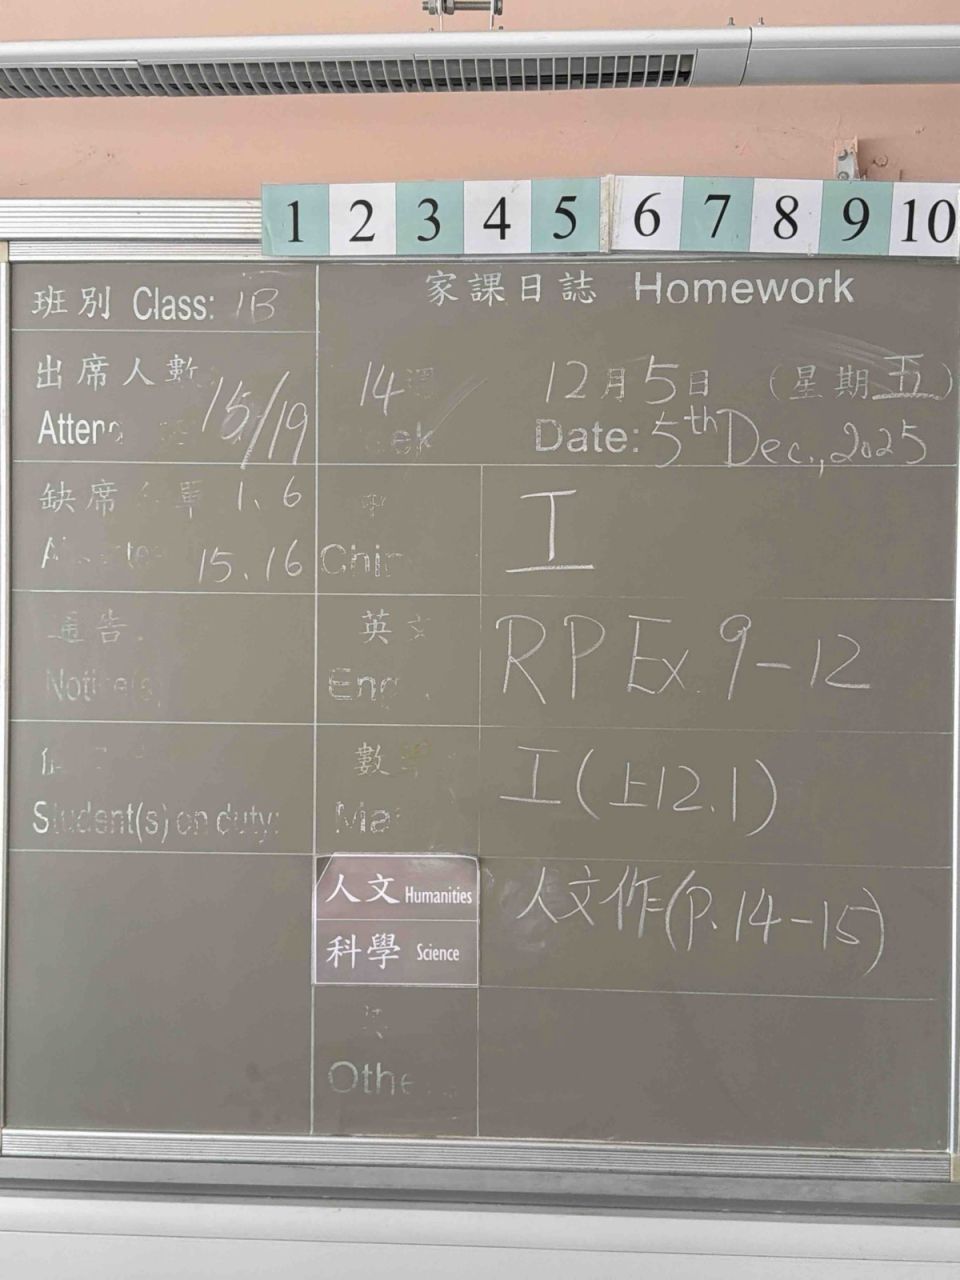 1 2 3 4 5 6 7 8 9 10
班別 Class: 1B
家課日誌 Homework
出席人數
15/19
14
12月5日 (星期五)
Date: 5th Dec., 2025
缺席 單 1、6
15、16
工
通告
英
RP Ex. 9-12
Student(s) on duty:
數
工(上12.1)
人文 Humanities
科學 Science
人文作(p.14-15)